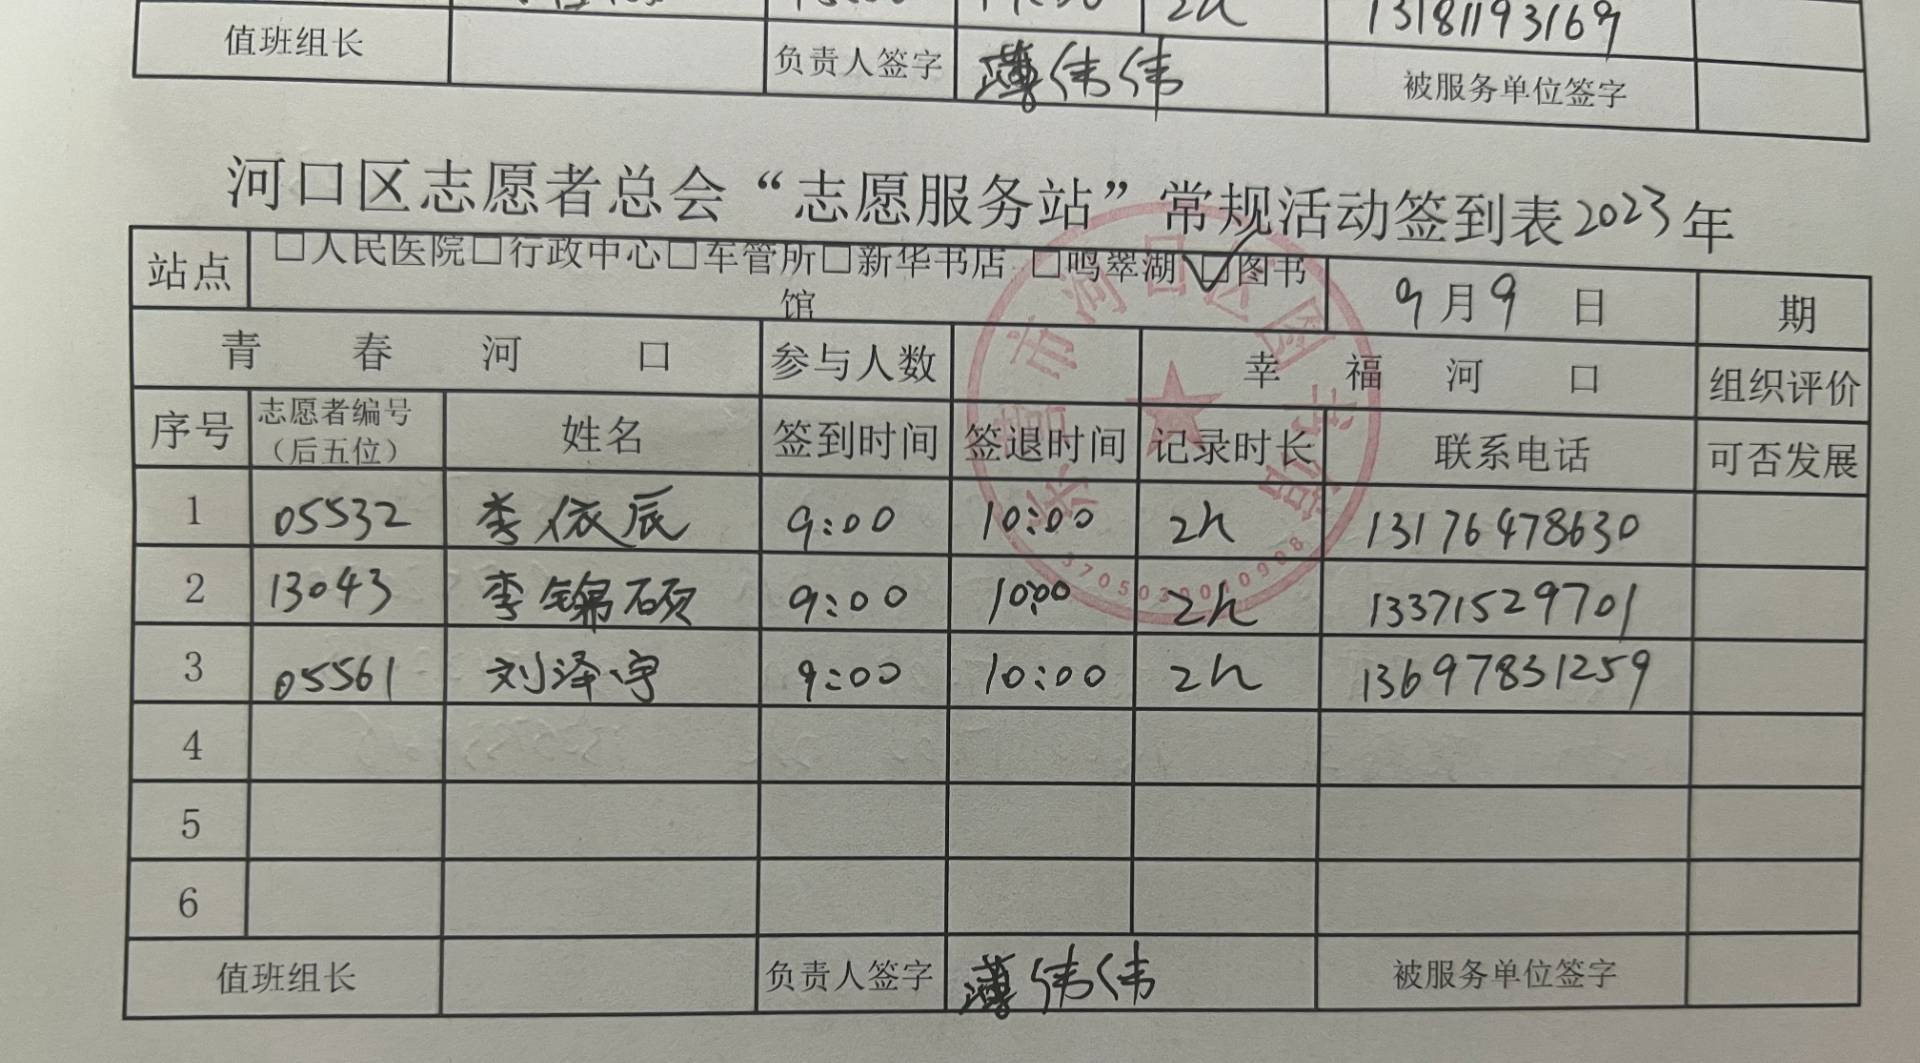 2h
13181193169
值班组长 负责人签字 薄伟伟 被服务单位签字
河口区志愿者总会“志愿服务站”常规活动签到表2023年
站点 □人民医院□行政中心□车管所□新华书店 □鸣翠湖 ☑图书馆 9月9日 期
青春河口 参与人数 幸福河口 组织评价
序号 志愿者编号（后五位） 姓名 签到时间 签退时间 记录时长 联系电话 可否发展
1 05532 李依辰 9:00 10:00 2h 13176478630
2 13043 李锦硕 9:00 10:00 2h 13371529701
3 05561 刘泽宇 9:00 10:00 2h 13697831259
4
5
6
值班组长 负责人签字 薄伟伟 被服务单位签字